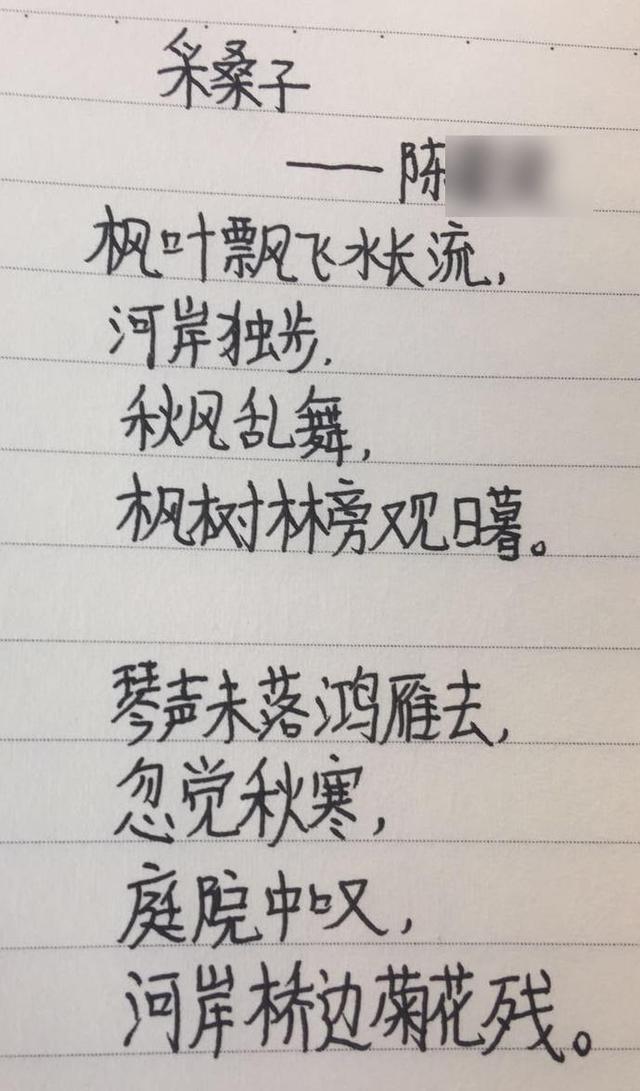 采桑子
——陈
枫叶飘飞水长流，
河岸独步，
秋风乱舞，
枫树林旁观日暮。
琴声未落鸿雁去，
忽觉秋寒，
庭院中叹，
河岸桥边菊花残。